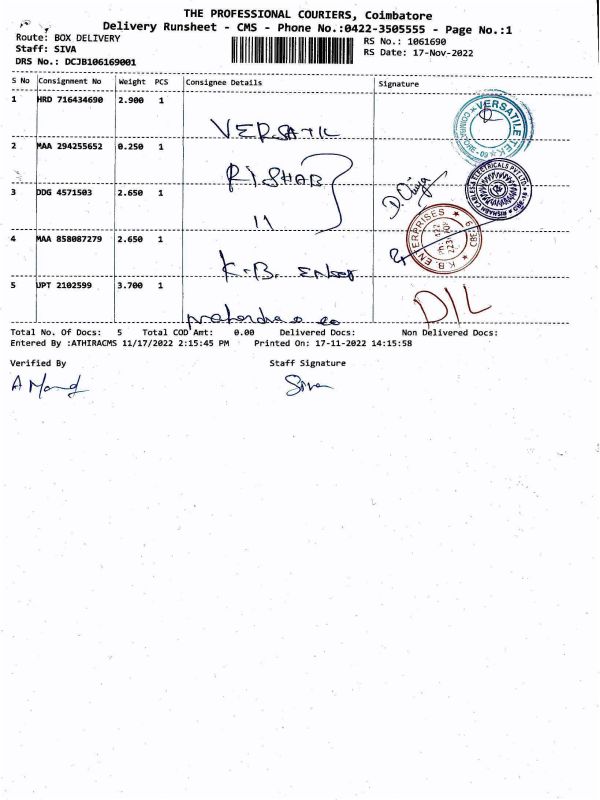 THE PROFESSIONAL COURIERS, Coimbatore
Delivery Runsheet - CMS - Phone No.:0422-3505555 - Page No.:1
Route: BOX DELIVERY
RS No.: 1061690
Staff: SIVA
RS Date: 17-Nov-2022
DRS No.: DCJB106169001
S No Consignment No Weight PCS Consignee Details Signature
1 HRD 716434690 2.900 1
VERSATIL
VERSATILE TEK
2 MAA 294255652 0.250 1
RISHAB
3 DDG 4571503 2.650 1
11
4 MAA 858087279 2.650 1
K.B. ENTERPRISES
K.B.
5 UPT 2102599 3.700 1
D/L
Total No. Of Docs: 5 Total COD Amt: 0.00 Delivered Docs: Non Delivered Docs:
Entered By :ATHIRACMS 11/17/2022 2:15:45 PM Printed On: 17-11-2022 14:15:58
Verified By Staff Signature
Siva